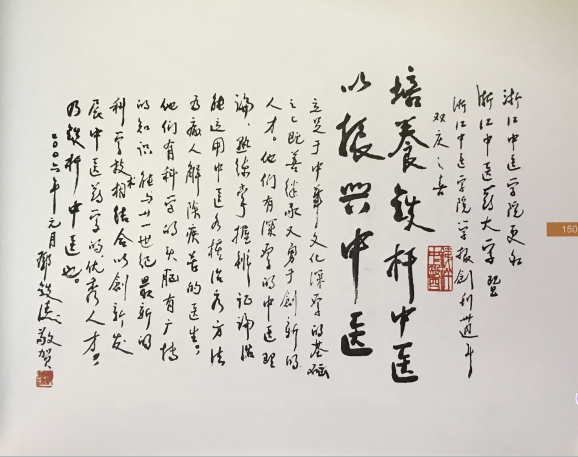 浙江中医学院更名
浙江中医药大学暨
浙江中医学院学报创刊卅年
双庆之喜
培养铁杆中医
以振兴中医
立足于中华文化深厚的基础
之上既善继承又勇于创新的
人才。他们有深厚的中医理
论，熟练掌握辨证论治
能运用中医各种治疗方法
为病人解除疾苦的医生。
他们有科学的头脑有广博
的知识能与廿一世纪最新的
科学技术相结合以创新发
展中医药学的优秀人才。
乃铁杆中医也。
二〇〇六年元月邓铁涛敬贺
150